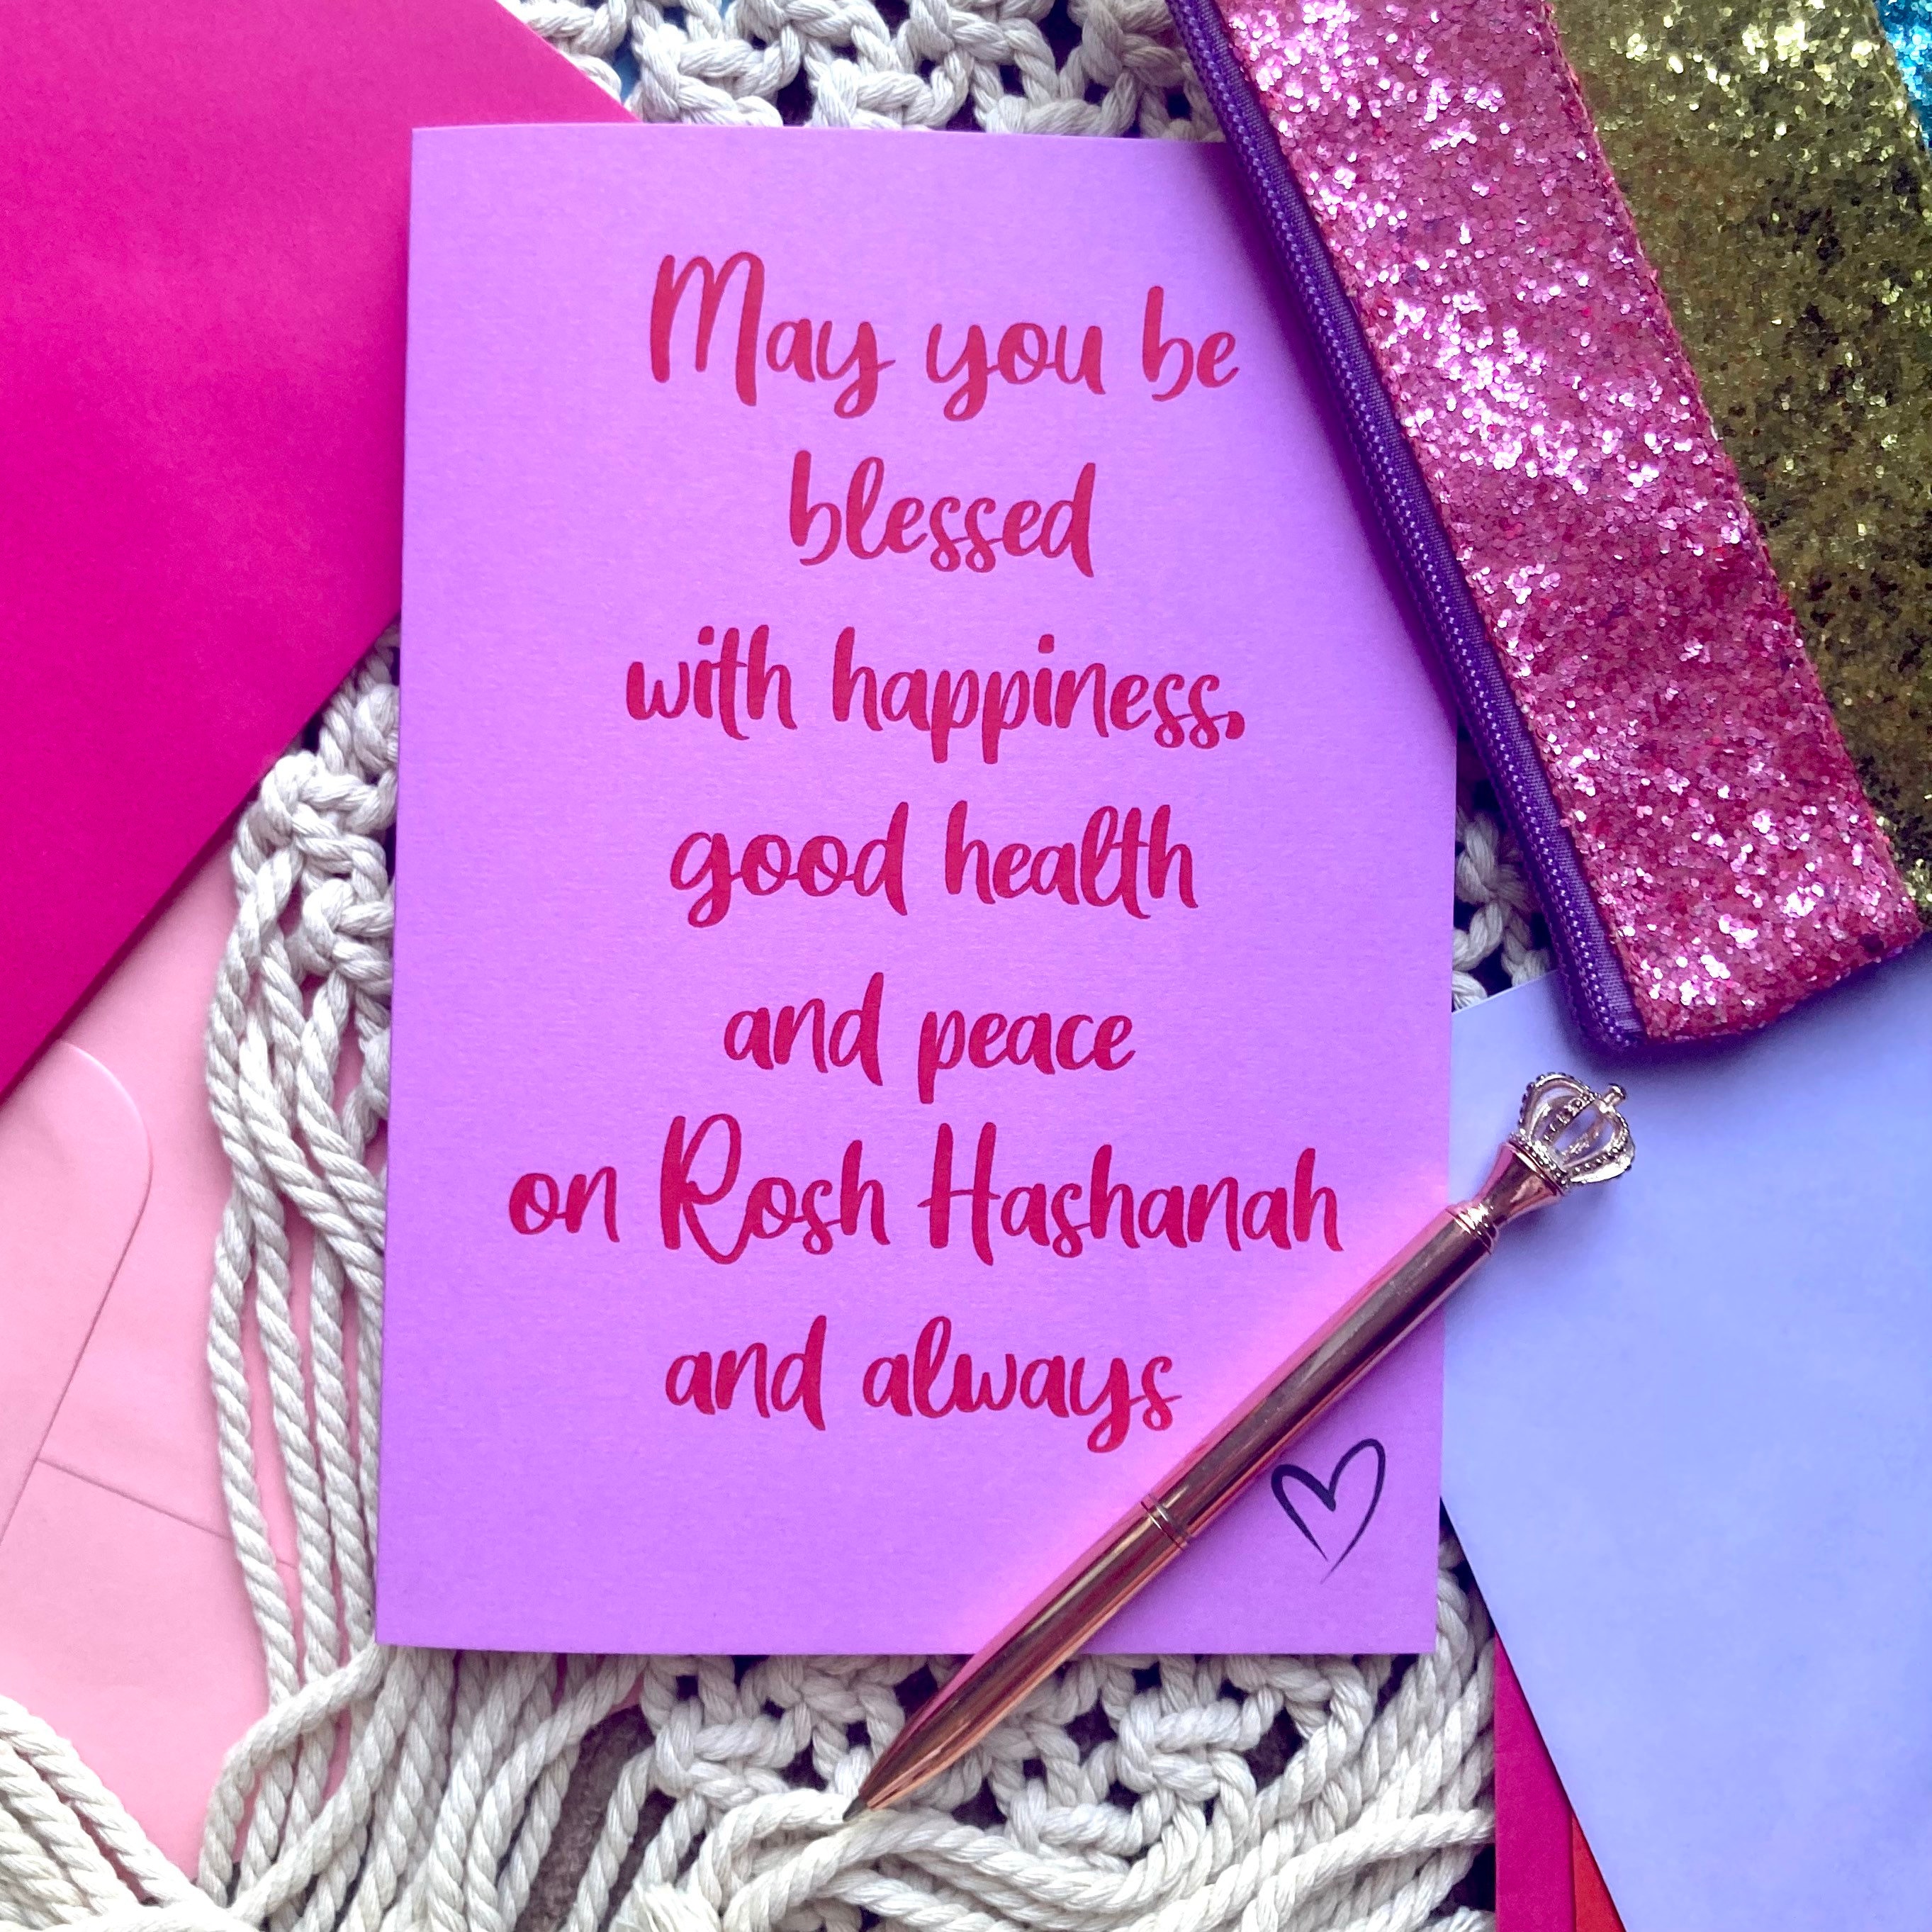 May you be
blessed
with happiness,
good health
and peace
on Rosh Hashanah
and always